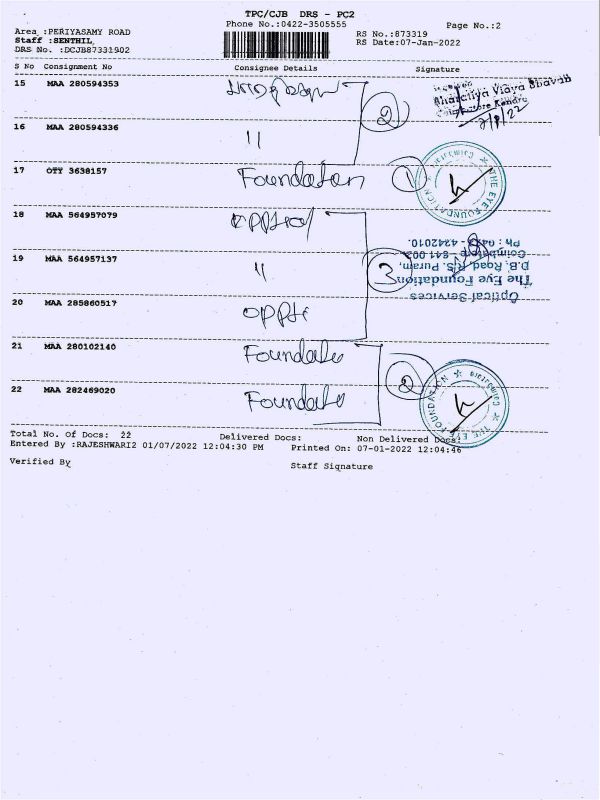 TPC/CJB DRS - PC2
Phone No.:0422-3505555
Page No.:2
Area :PERIYASAMY ROAD
Staff :SENTHIL
DRS No. :DCJB87331902
RS No.:873319
RS Date:07-Jan-2022
S No Consignment No Consignee Details Signature
15 MAA 280594353
2
Bharatiya Vidya Bhavan
Coimbatore Kendra
16 MAA 280594336 "
17 OTY 3638157 Foundation 1
THE EYE FOUNDATION ★ Coimbatore ★
18 MAA 564957079 optical
19 MAA 564957137 " 3
Optical Services
The Eye Foundation
D.B. Road, R.S. Puram,
Coimbatore - 641 002.
Ph : 0422 - 4242010.
20 MAA 285860517 opti
21 MAA 280102140 Foundatio
2
22 MAA 282469020 Foundatio
THE EYE FOUNDATION ★ Coimbatore ★
Total No. Of Docs: 22 Delivered Docs: Non Delivered Docs:
Entered By :RAJESHWARI2 01/07/2022 12:04:30 PM Printed On: 07-01-2022 12:04:46
Verified By Staff Signature